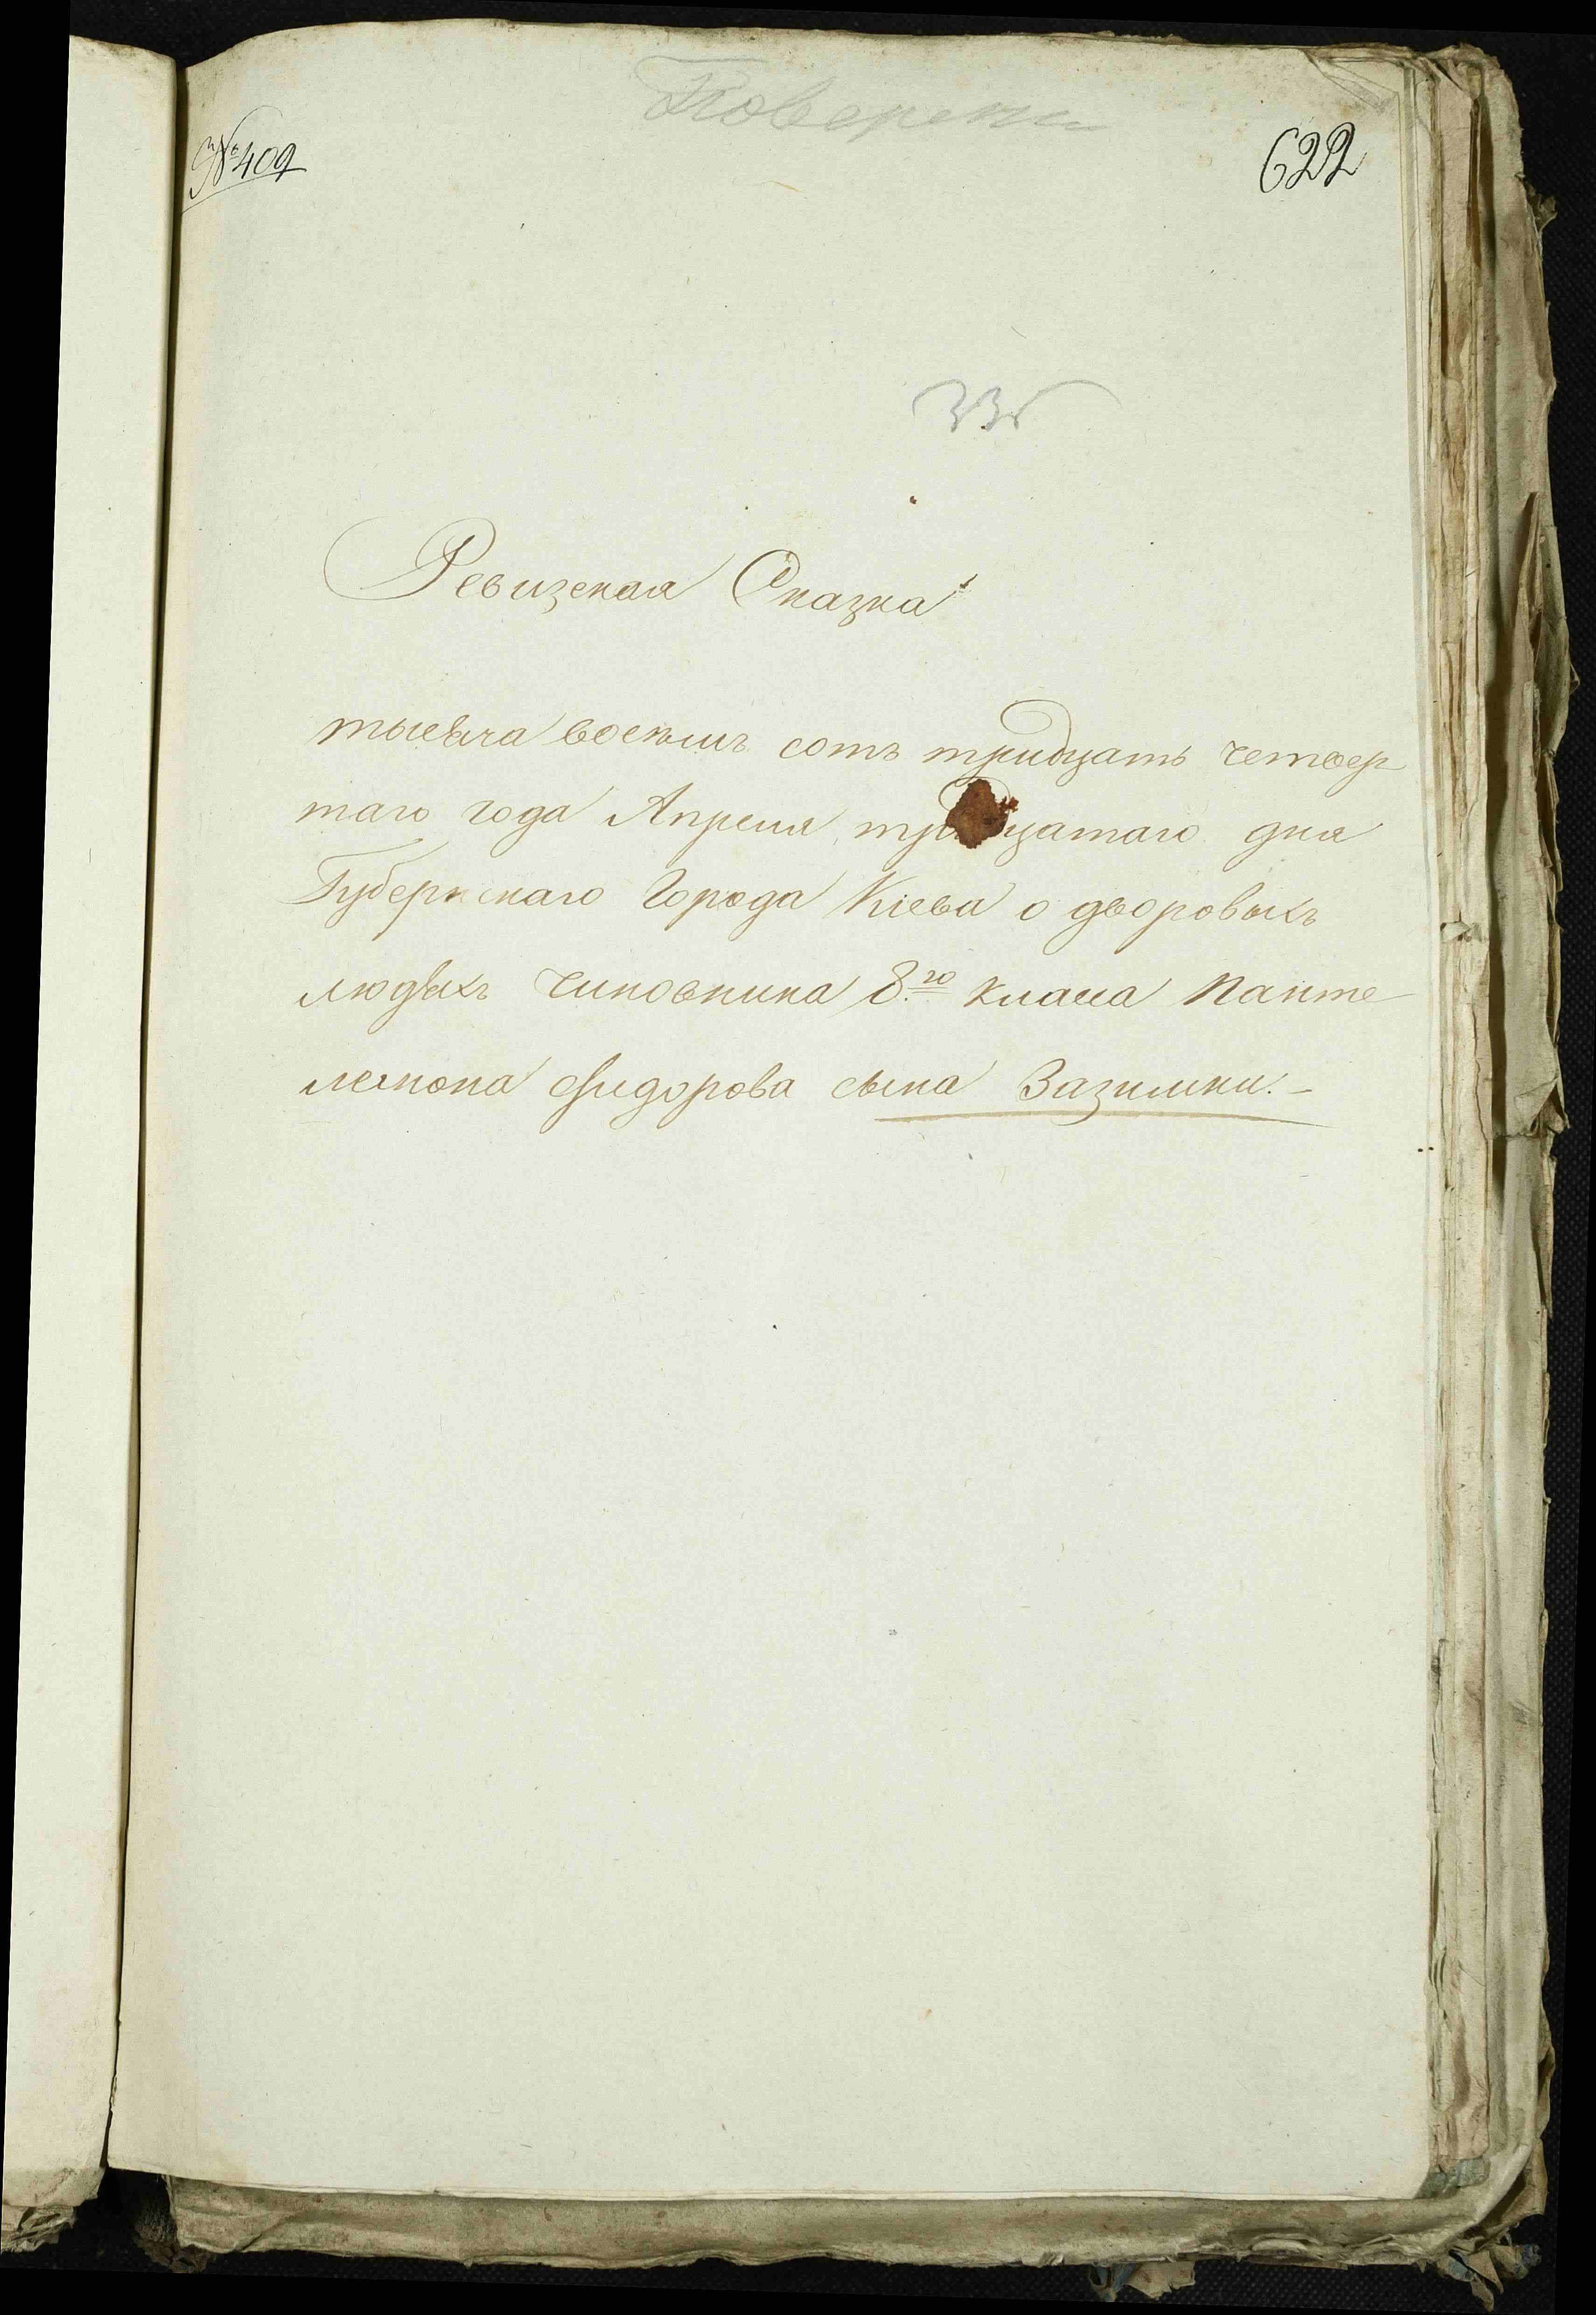 № 409
622
Ревизская Сказка
тысяча восемь сотъ тридцать четвер
таго года Апреля тридцатаго дня
Губернскаго Города Кіева о дворовыхъ
людяхъ чиновника 8.го класа Панте
леимона Фидорова сына Зазимки.-